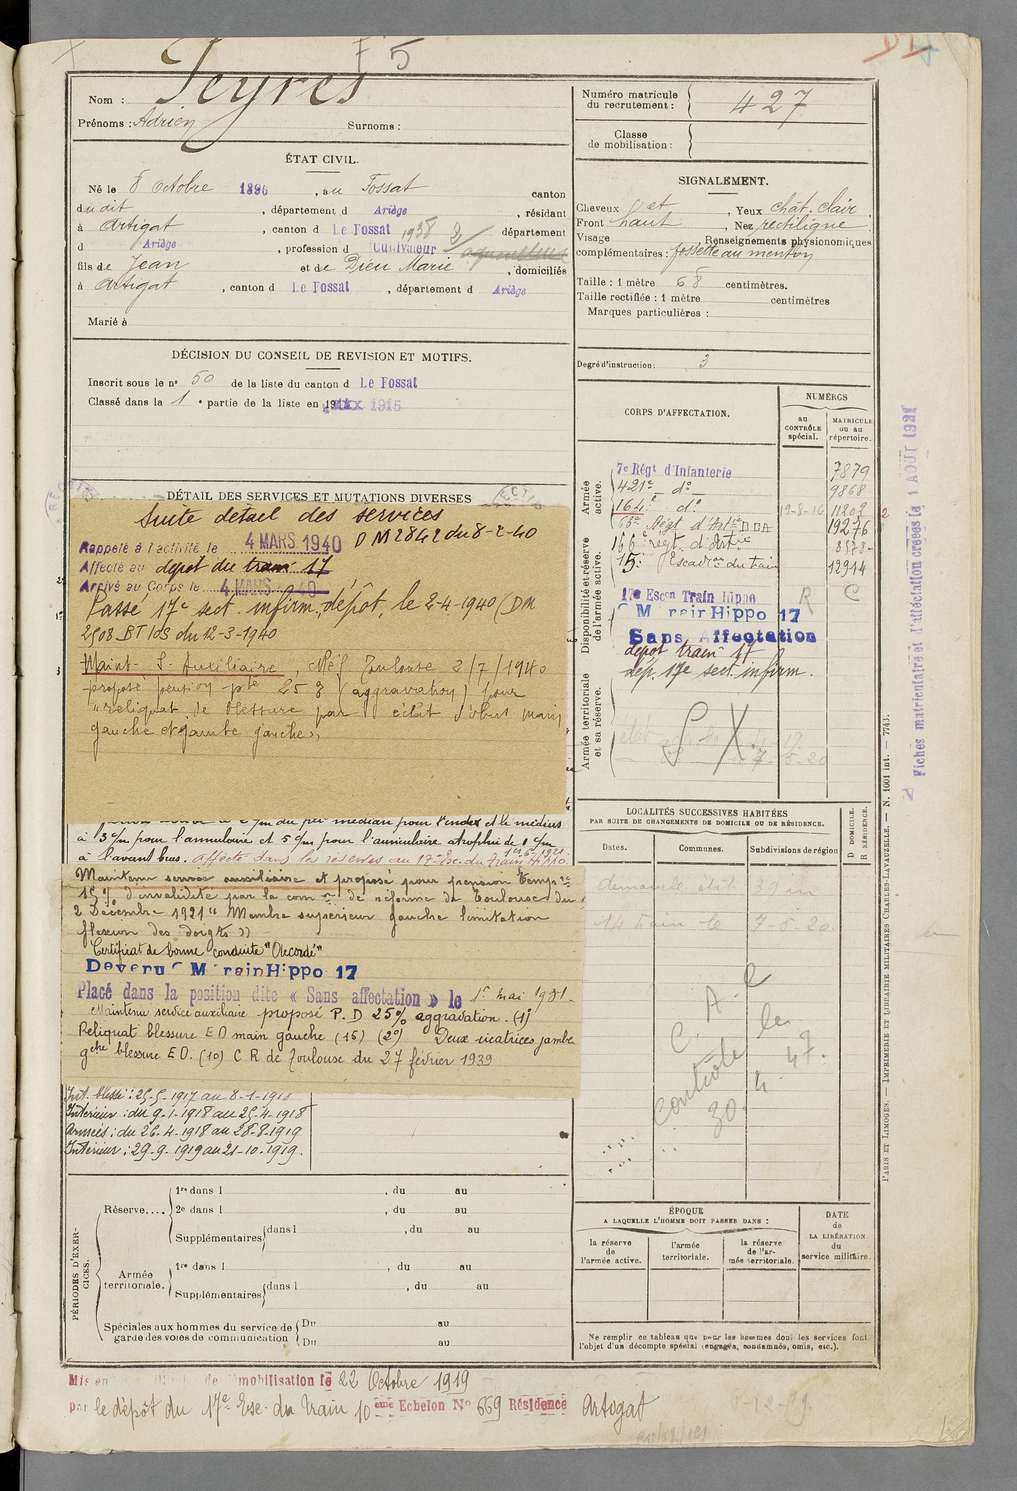 F 5
Nom : Feyres
Prénoms : Adrien Surnoms :
Numéro matricule
du recrutement : 427
Classe
de mobilisation :
ÉTAT CIVIL.
Né le 8 Octobre 1896, au Fossat canton
dudit, département d Ariège, résidant
à Artigat, canton d Le Fossat 1938 département
d Ariège, profession d Cultivateur
fils de Jean et de Dieu Marie, domiciliés
à Artigat, canton d Le Fossat, département d Ariège
Marié à
SIGNALEMENT.
Cheveux , Yeux chât. clair
Front haut, Nez rectiligne
Visage Renseignements physionomiques
complémentaires : fossette au menton
Taille : 1 mètre 68 centimètres.
Taille rectifiée : 1 mètre centimètres
Marques particulières :
Degré d'instruction : 3
DÉCISION DU CONSEIL DE REVISION ET MOTIFS.
Inscrit sous le nº 50 de la liste du canton d Le Fossat
Classé dans la 1e partie de la liste en 1915
CORPS D'AFFECTATION.
NUMÉROS
au CONTRÔLE spécial.
MATRICULE ou au répertoire.
Armée active.
7e Régt d'Infanterie 7879
421e dº 9868
164e dº 19-8-16 11203
Régt d'Artie 19276
régt. d'Artie
15e Escadron du train 12914
Disponibilité et réserve de l'armée active.
17e Escon Train Hippo R C
C M Train Hippo 17
Sans Affectation
dépôt train 17
dép. 17e sect. infirm.
Armée territoriale et sa réserve.
S X
DÉTAIL DES SERVICES ET MUTATIONS DIVERSES
Suite détail des services
Rappelé à l'activité le 4 MARS 1940 DM 2842 du 8-2-40
Affecté au dépôt du train 17
Arrivé au Corps le 4 MARS 40
Passé 17e sect. infirm. dépôt, le 2-4-1940 (DM
2508 BT 10S du 12-3-1940
Maint. S. Auxiliaire, Réf Toulouse 2/7/1940
proposé pension 25 % (aggravation) pour
"reliquat de blessure par éclat d'obus main
gauche et jambe gauche"
à 3 c/m pour l'annulaire et 5 c/m pour l'auriculaire atrophie de 1 c/m
à l'avant bras. affecté dans les réserves au 17e Esc. du Train Hippo.
Maintenu service auxiliaire et proposé pour pension temp.re
15% d'invalidité par la comon de réforme de Toulouse du
2 Décembre 1921 "Membre supérieur gauche limitation
flexion des doigts"
Certificat de bonne conduite "Accordé"
Devenu C M Train Hippo 17
Placé dans la position dite « Sans affectation » le 1er mai 1931
Maintenu service auxiliaire proposé P. D 25% aggravation. (1º)
Reliquat blessure E O main gauche (15) (2º) Deux cicatrices jambe
gche blessure E O. (10) C R de Toulouse du 27 février 1939
Int. blessé : 25-5-1917 au 8-1-1918
Intérieur : du 9-1-1918 au 25-4-1918
Armées : du 26-4-1918 au 28-8-1919
Intérieur : 29-9-1919 au 21-10-1919.
LOCALITÉS SUCCESSIVES HABITÉES
PAR SUITE DE CHANGEMENTS DE DOMICILE OU DE RÉSIDENCE.
Dates. Communes. Subdivisions de région
D DOMICILE.
R RÉSIDENCE.
14 train le 7-5-20
C. A. C
Contrôle le
30. 4. 47.
PÉRIODES D'EXERCICES.
Réserve....
1re dans l , du au
2e dans l , du au
Supplémentaires dans l , du au
Armée territoriale.
1re dans l , du au
Supplémentaires dans l , du au
Spéciales aux hommes du service de Du au
garde des voies de communication Du au
ÉPOQUE
A LAQUELLE L'HOMME DOIT PASSER DANS :
la réserve de l'armée active.
l'armée territoriale.
la réserve de l'armée territoriale.
DATE de LA LIBÉRATION du service militaire.
Ne remplir ce tableau que pour les hommes dont les services font
l'objet d'un décompte spécial (engagés, condamnés, omis, etc.).
Mis en de mobilisation le 22 Octobre 1919
par le dépôt du 17e Esc. du Train 10ème Echelon Nº 669 Résidence Artogat
PARIS ET LIMOGES. — IMPRIMERIE ET LIBRAIRIE MILITAIRES CHARLES-LAVAUZELLE. — N. 1001 int. — 7743.
Fiches matriculaire et d'affectation créées le 1 AOUT 1921